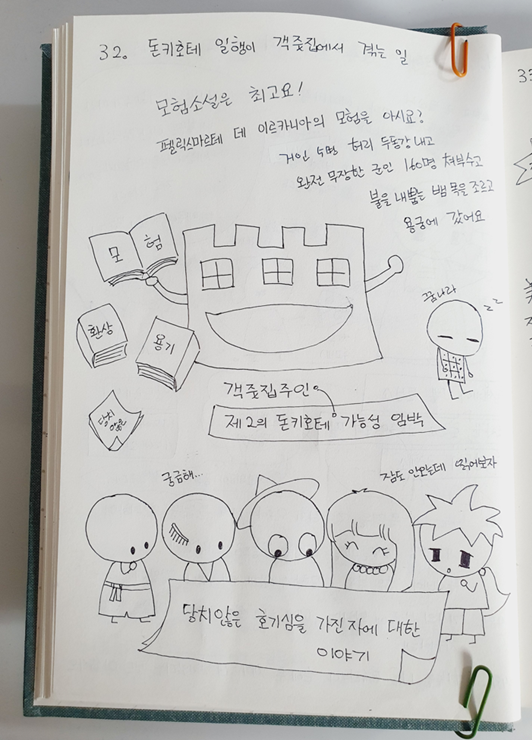 32. 돈키호테 일행이 객줏집에서 겪는 일
모험소설은 최고요!
펠릭스마르테 데 이르카니아의 모험을 아시요?
거인 5명 허리 두동강 내고
완전 무장한 군인 160명 쳐부수고
불을 내뿜는 뱀 목을 조르고
용궁에 갔어요
모 험
환상
용기
당치
않은
꿈나라
zz
객줏집주인
제2의 돈키호테 가능성 임박
궁금해...
잠도 안오는데 읽어보자
당치않은 호기심을 가진 자에 대한
이야기
33